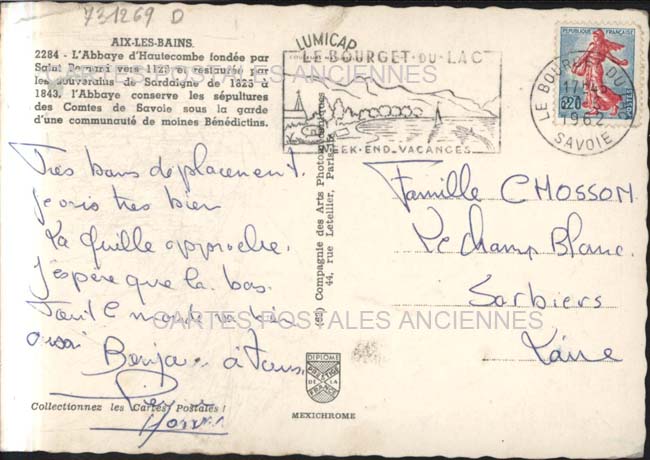 731269 D
AIX-LES-BAINS.
2284 - L'Abbaye d'Hautecombe fondée par
Saint Bernard vers 1125 et restaurée par
les souverains de Sardaigne de 1825 à
1843, l'Abbaye conserve les sépultures
des Comtes de Savoie sous la garde
d'une communauté de moines Bénédictins.
LUMICAP
LE BOURGET-DU-LAC
WEEK-END VACANCES
LE BOURGET DU
17H45
1962
SAVOIE
REPUBLIQUE FRANÇAISE
0,20
POSTES
CARTES POSTALES ANCIENNES
Très bons déplacement.
je suis très bien
La quille approche.
j'espère que la bas
Tout le monde va bien
aussi Bonjour à tous
Collectionnez les Cartes Postales !
(63) Compagnie des Arts Photomécaniques
44, rue Letellier, Paris-15
DIPLOME
PRESTIGE
DE LA
FRANCE
MEXICHROME
Famille CHOSSON
Le champ Blanc
Sorbiers
Loire
CARTES POSTALES ANCIENNES